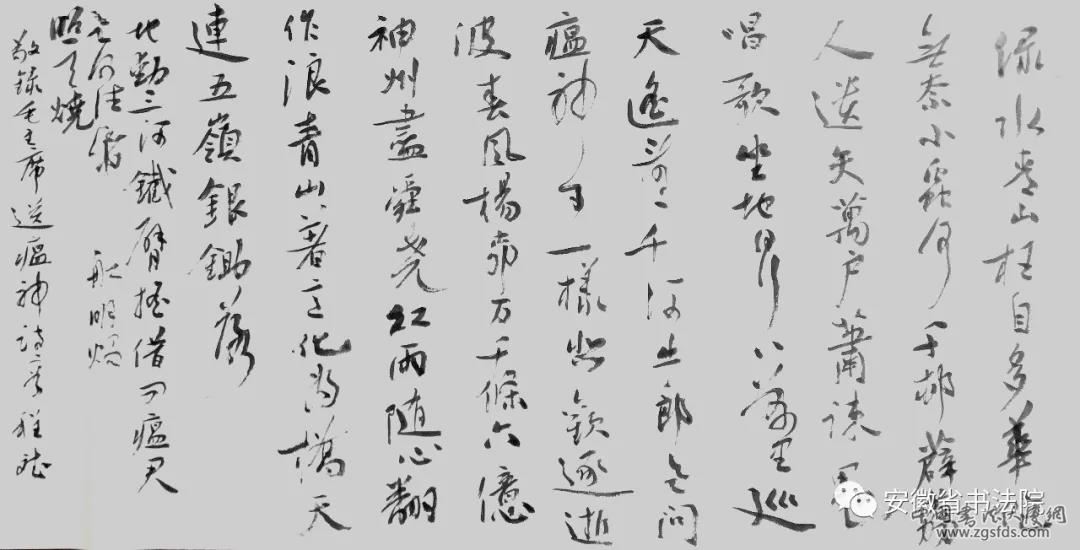 绿水青山枉自多華
無奈小蟲何千邨薜
人遺矢萬户蕭疎鬼
唱歌坐地日行八萬里巡
天遙看一千河牛郎欲問
瘟神事一樣悲歡逐逝
波春風楊柳万千條六億
神州盡舜尧红雨随心翻
作浪青山著意化為橋天
連五嶺銀鋤落
地動三河鐵臂搖借问瘟君
欲何往紙船明燭
照天燒
敬録毛主席送瘟神詩二首
安徽省书法院
中國書法伏廣網
www.zgsfds.com